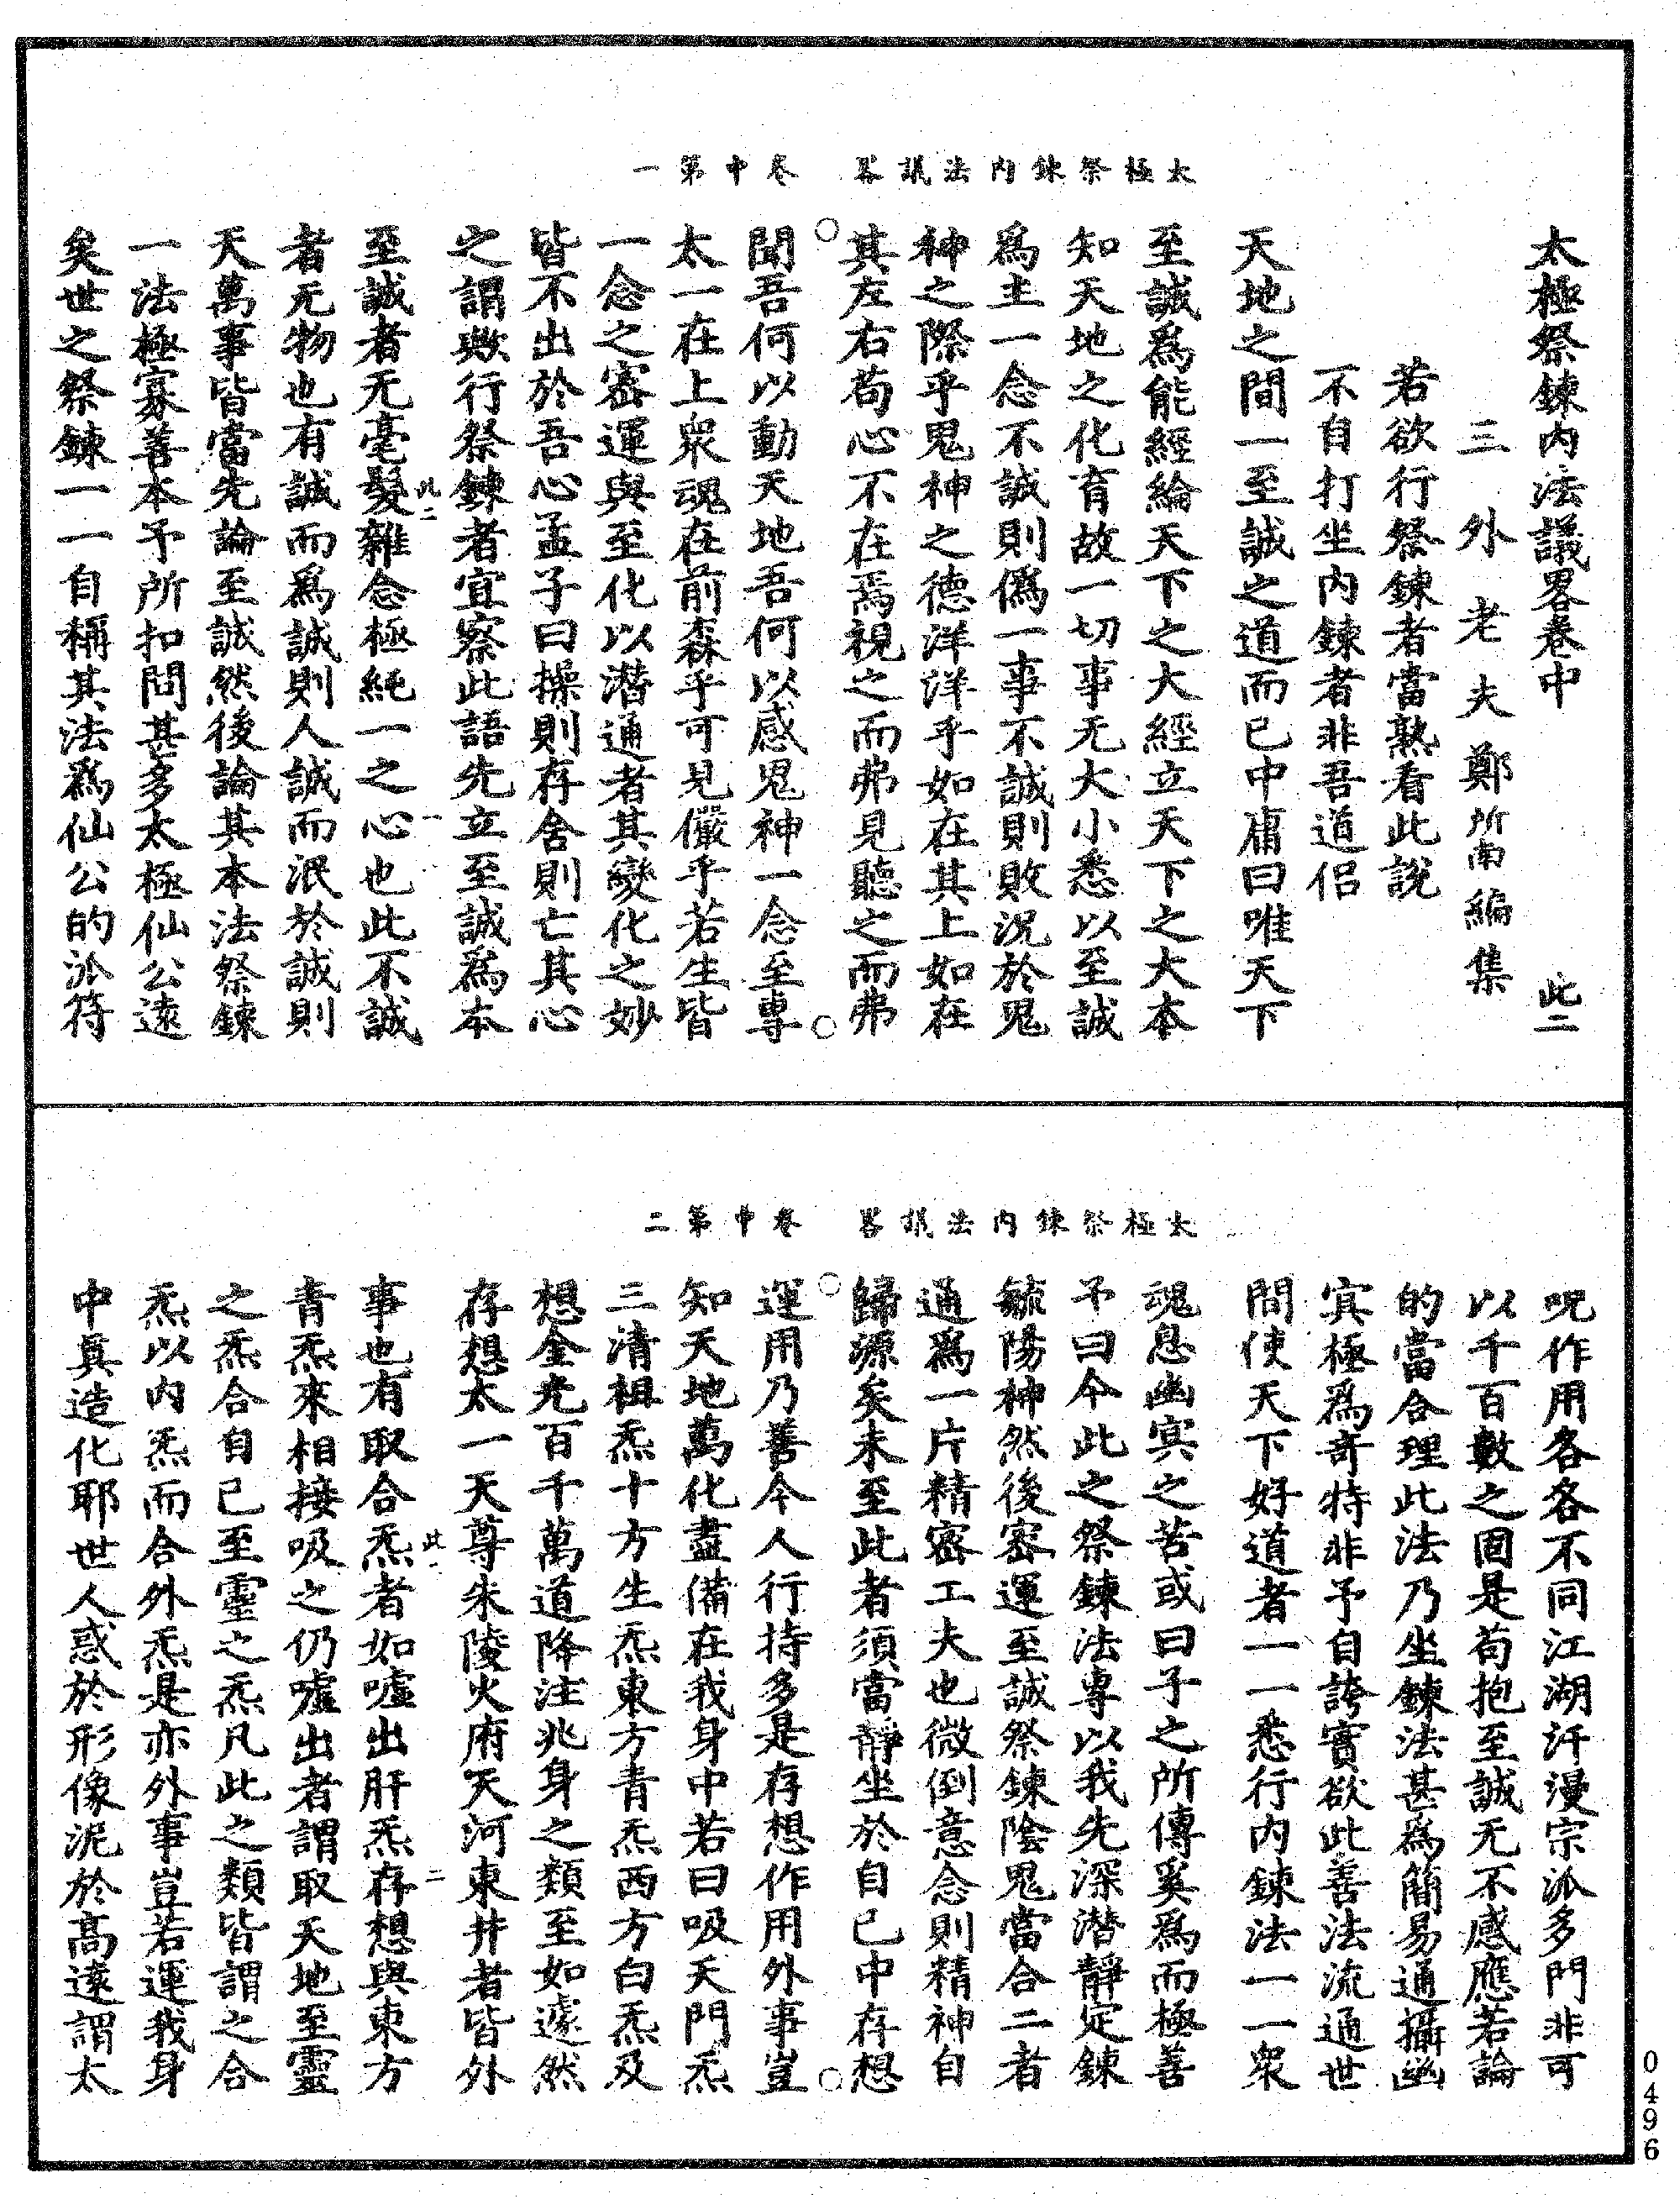 太極祭鍊內法議畧卷中 第一
太極祭鍊內法議畧卷中 此二
三外老夫鄭所南編集
若欲行祭鍊者當熟看此說
不自打坐內鍊者非吾道侶
天地之間一至誠之道而已中庸曰唯天下
至誠爲能經綸天下之大經立天下之大本
知天地之化育故一切事无大小悉以至誠
爲主一念不誠則僞一事不誠則敗況於鬼
神之際乎鬼神之德洋洋乎如在其上如在
其左右苟心不在焉視之而弗見聽之而弗
聞吾何以動天地吾何以感鬼神一念至專
太一在上衆魂在前森乎可見儼乎若生皆
一念之密運與至化以潛通者其變化之妙
皆不出於吾心孟子曰操則存舍則亡其心
之謂歟行祭鍊者宜察此語先立至誠爲本
此二 一
至誠者无毫髮雜念極純一之心也此不誠
者无物也有誠而爲誠則人誠而泯於誠則
天萬事皆當先論至誠然後論其本法祭鍊
一法極寡善本予所扣問甚多太極仙公遠
矣世之祭鍊一一自稱其法爲仙公的派符
太極祭鍊內法議畧卷中 第二
呪作用各各不同江湖汗漫宗派多門非可
以千百數之固是苟抱至誠无不感應若論
的當合理此法乃坐鍊法甚爲簡易通攝幽
冥極爲奇特非予自誇實欲此善法流通世
間使天下好道者一一悉行內鍊法一一衆
魂息幽冥之苦或曰子之所傳奚爲而極善
予曰今此之祭鍊法專以我先深潛靜定鍊
毓陽神然後密運至誠祭鍊陰鬼當合二者
通爲一片精密工夫也微倒意念則精神自
歸源矣未至此者須當靜坐於自己中存想
運用乃善今人行持多是存想作用外事豈
知天地萬化盡備在我身中若曰吸天門炁
三清祖炁十方生炁東方青炁西方白炁及
想金光百千萬道降注兆身之類至如遽然
存想太一天尊朱陵火府天河東井者皆外
此一 二
事也有取合炁者如噓出肝炁存想與東方
青炁來相接吸之仍噓出者謂取天地至靈
之炁合自己至靈之炁凡此之類皆謂之合
炁以內炁而合外炁是亦外事豈若運我身
中眞造化耶世人惑於形像泥於高遠謂太
0496